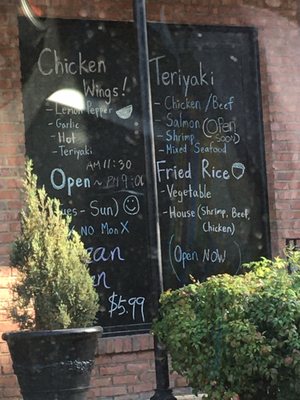 Chicken
Wings!
- Lemon Pepper
- Garlic
- Hot
- Teriyaki
AM 11:30
Open ~ PM 9:00
Tues - Sun)
No Mon X
$5.99
Teriyaki
- Chicken / Beef
- Salmon
- Shrimp
- Mixed Seafood
(Open
Soon)
Fried Rice
- Vegetable
- House (Shrimp, Beef,
Chicken)
(Open Now)